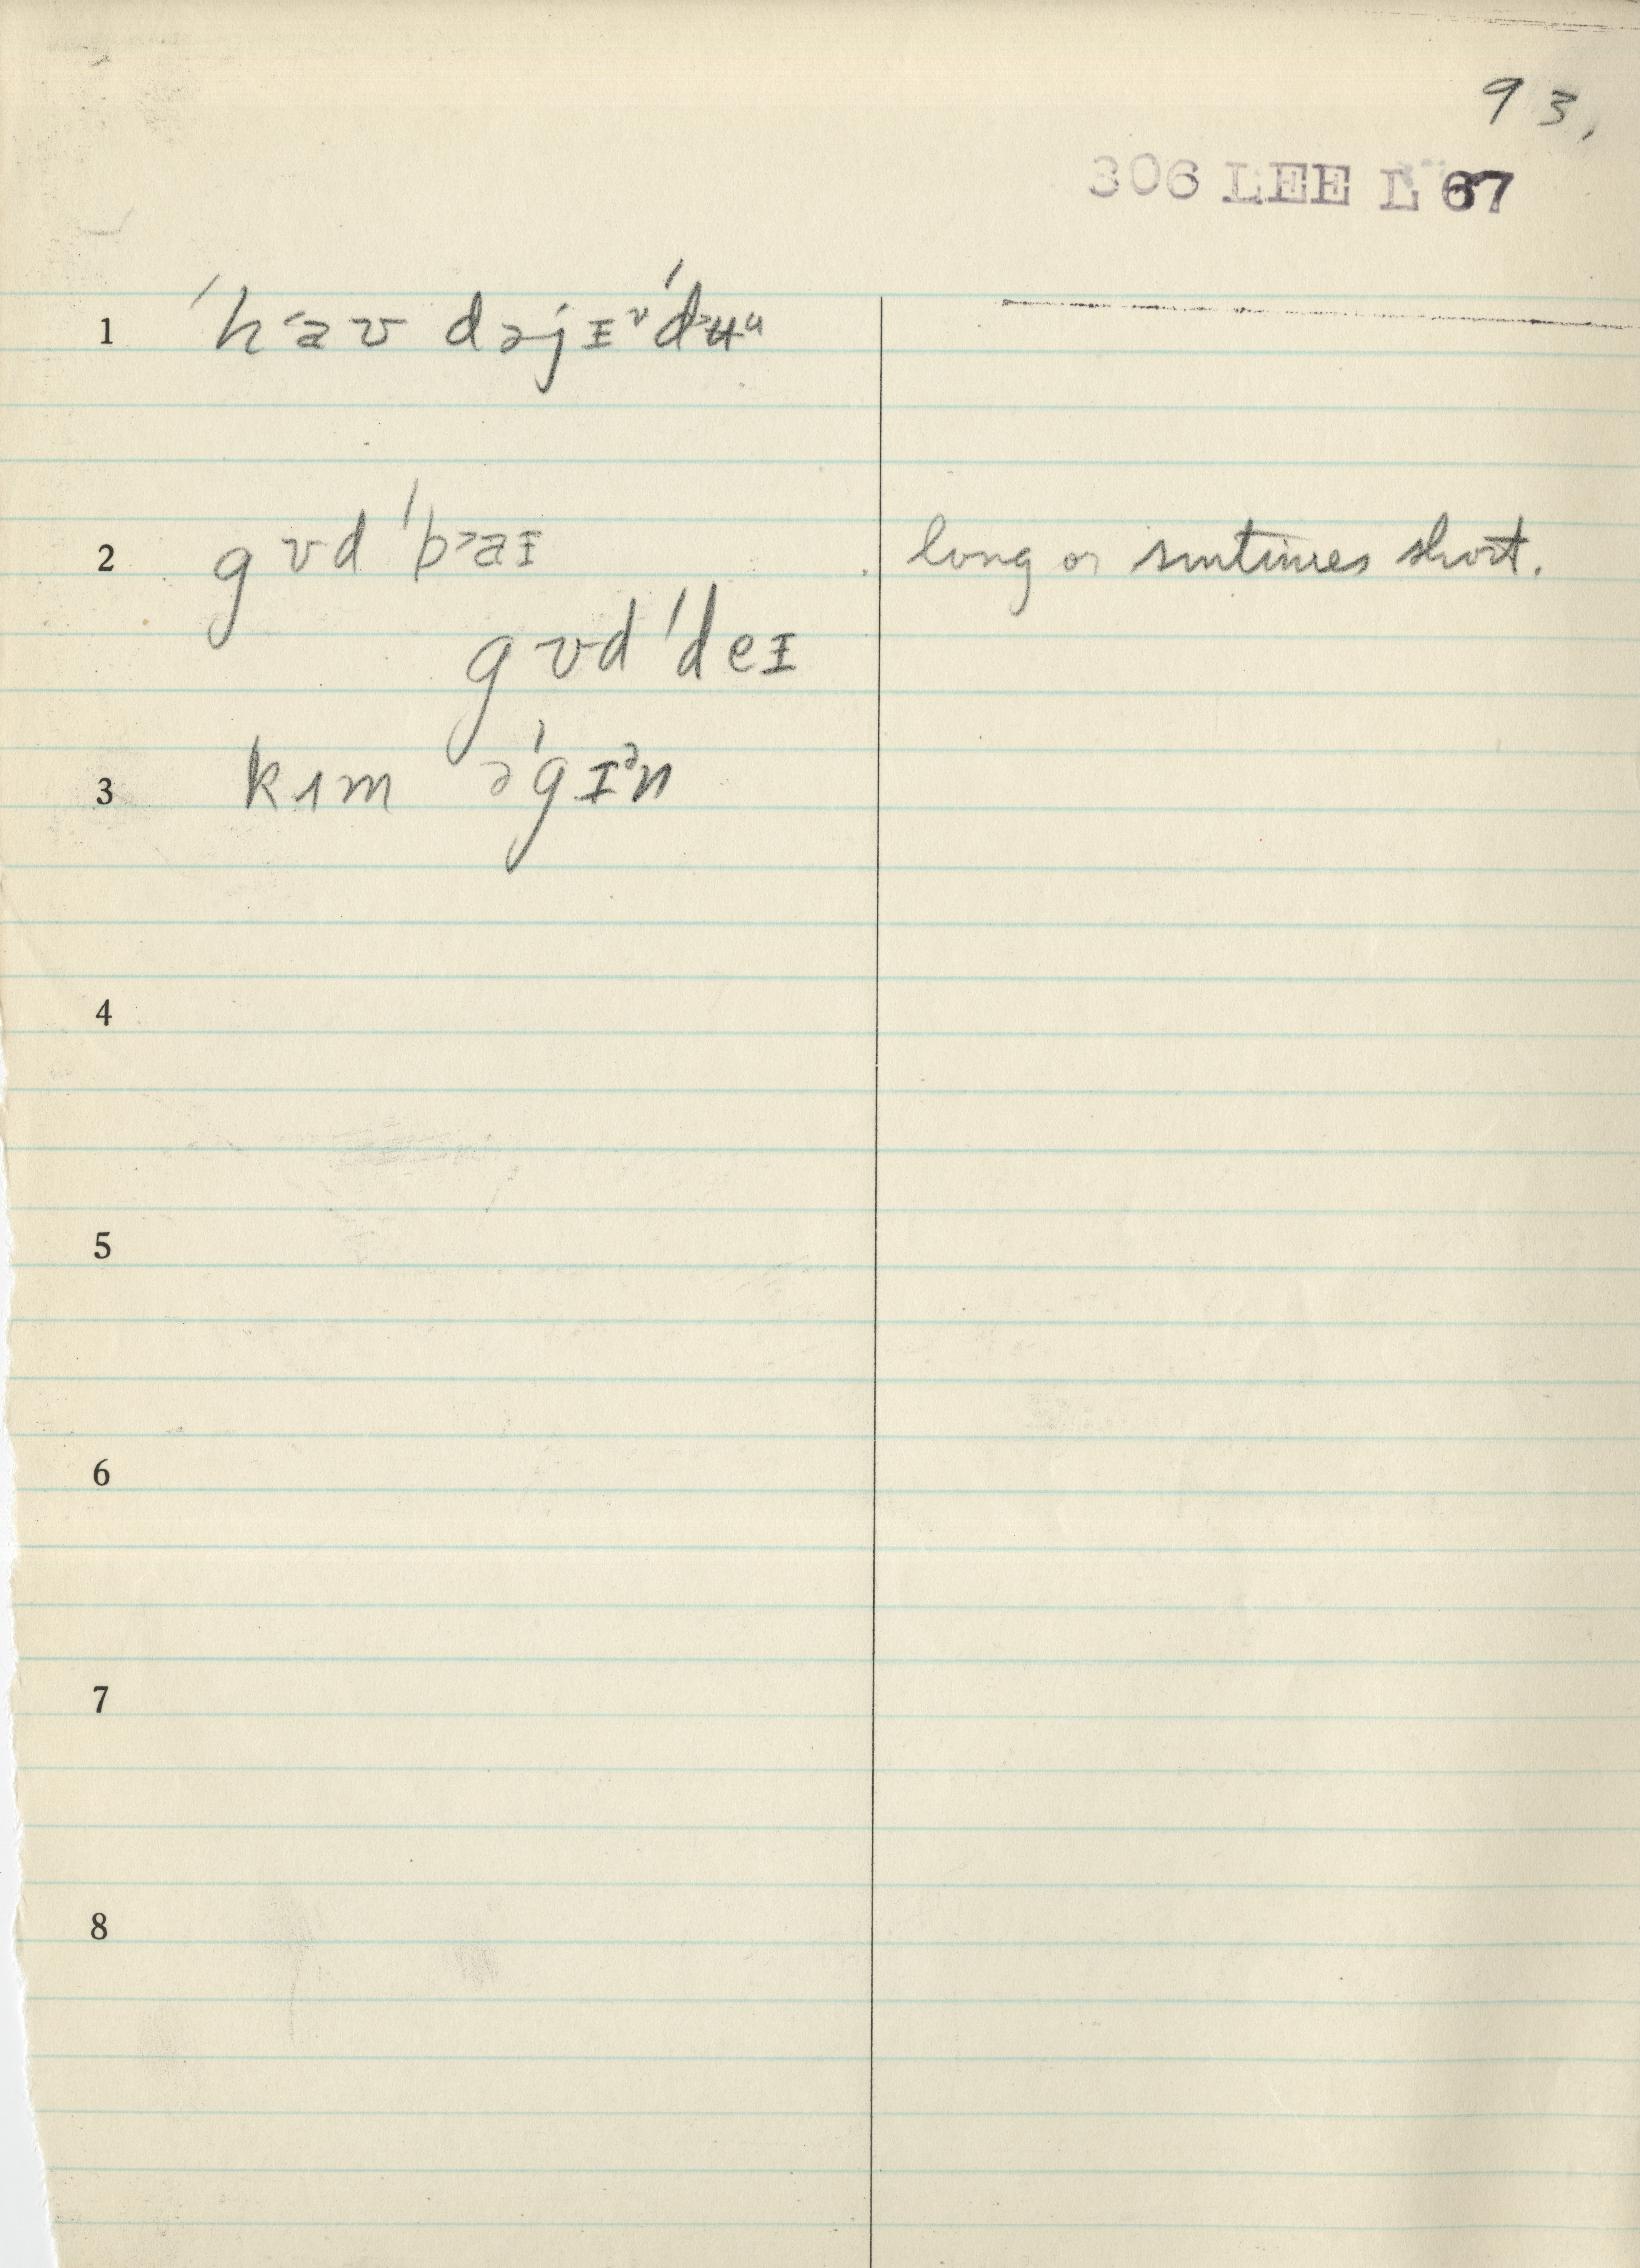 93.
306 LEE L 67
1 ˈh˂aʊ dəjɪᶷˈd˃ʉᵘ
2 gʊd ˈb˃aɪ long or sometimes short.
gʊd ˈdeɪ
3 kɪm əˈgɪᵊn
4
5
6
7
8